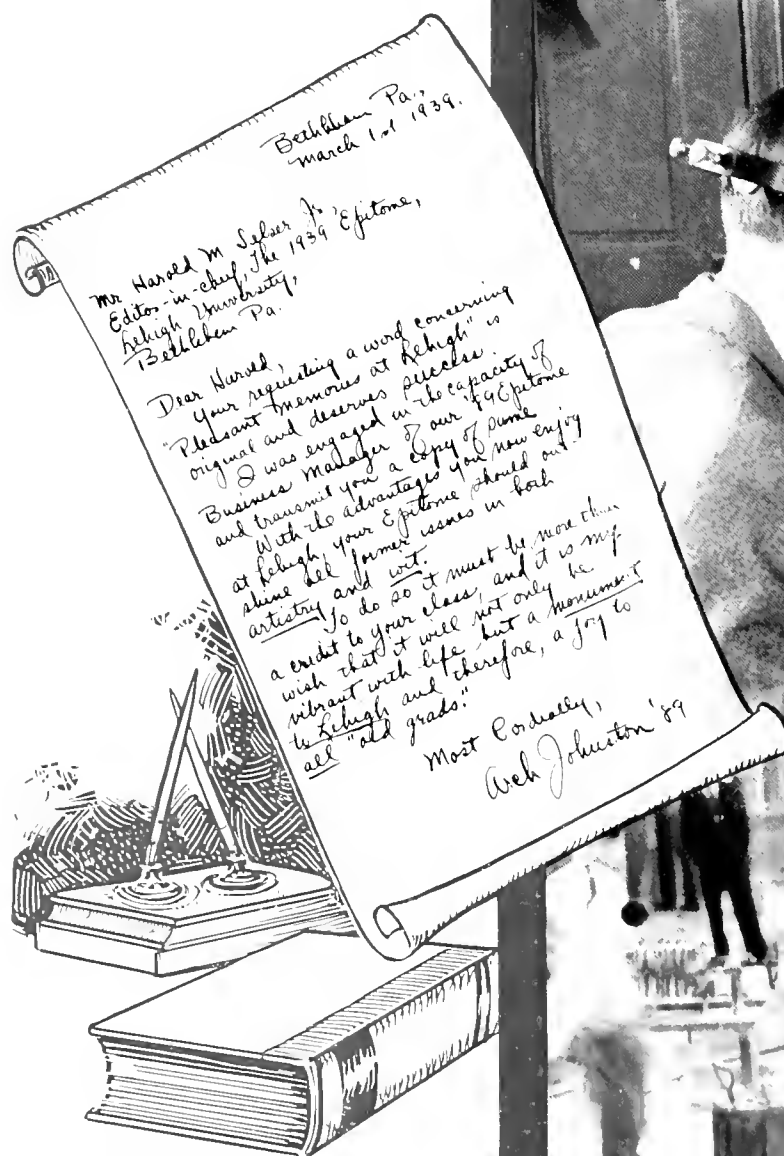 Bethlehem Pa.,
March 1st 1939.
Mr Harold M Selser Jr.
Editor-in-chief, The 1939 Epitome,
Lehigh University,
Bethlehem Pa.
Dear Harold,
Your requesting a word concerning
"Pleasant Memories at Lehigh" is
original and deserves success.
I was engaged in the capacity of
Business Manager of our '89 Epitome
and transmit you a copy of same
With the advantages you now enjoy
at Lehigh, your Epitome should out
shine all former issues in both
artistry and wit.
To do so it must be more than
a credit to your class, and it is my
wish that it will not only be
vibrant with life but a monument
to Lehigh and therefore, a joy to
all "old grads."
Most Cordially,
Arch Johnston '89